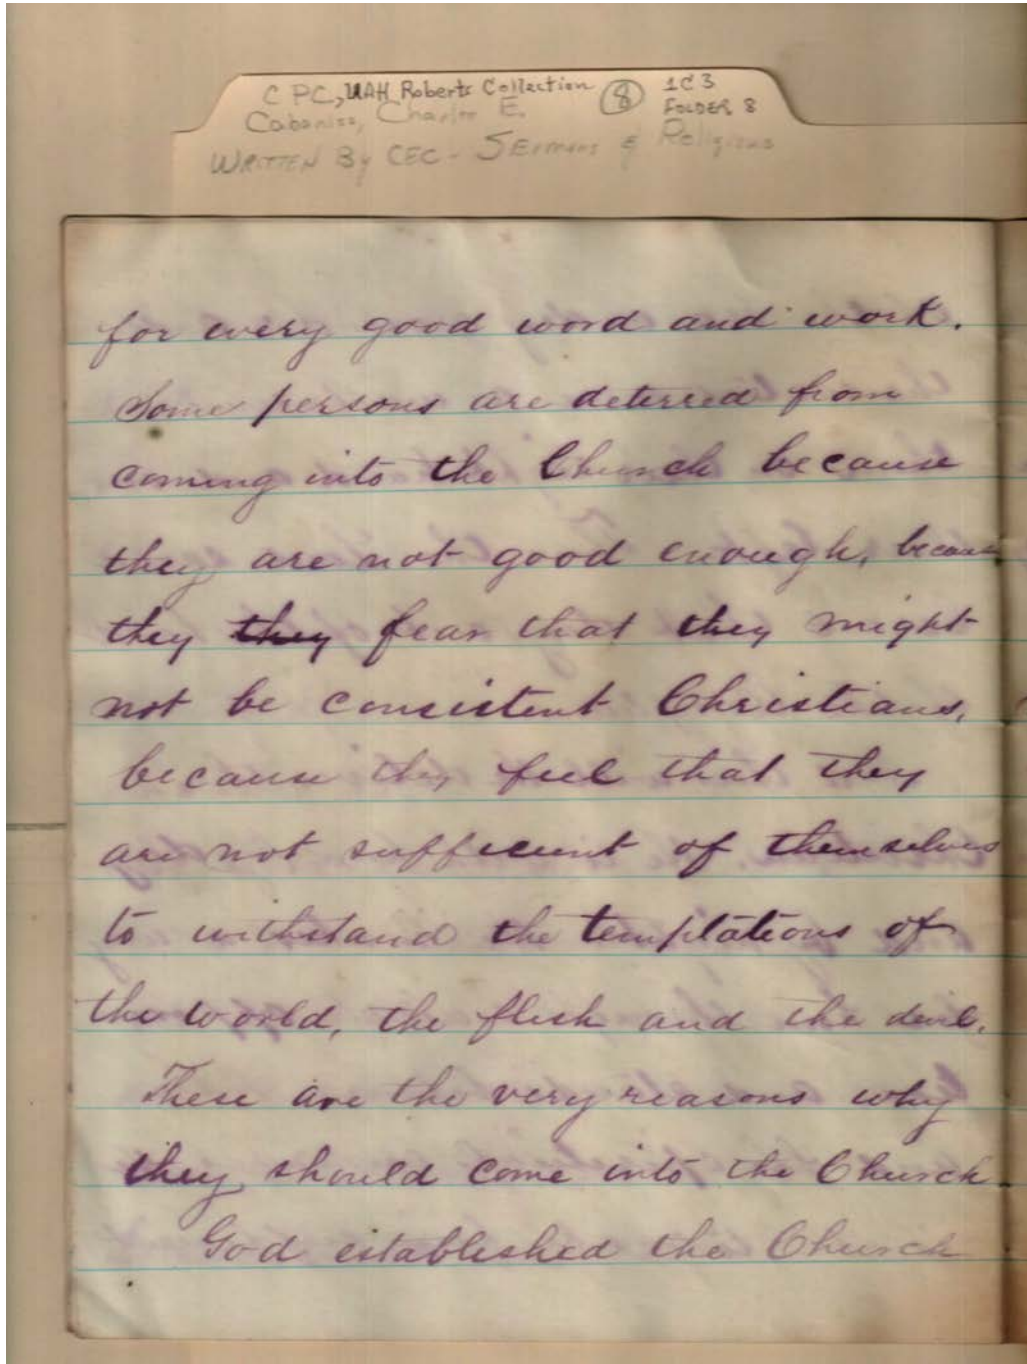 C PC, UAH Roberts Collection 8 1C3
Cabaniss, Charles E. FOLDER 8
WRITTEN By CEC - SERMONS & Religious
for every good word and work.
Some persons are deterred from
coming into the Church because
they are not good enough, because
they they fear that they might
not be consistent Christians,
because they feel that they
are not sufficient of themselves
to withstand the temptations of
the world, the flesh and the devil.
These are the very reasons why
they should come into the Church.
God established the Church